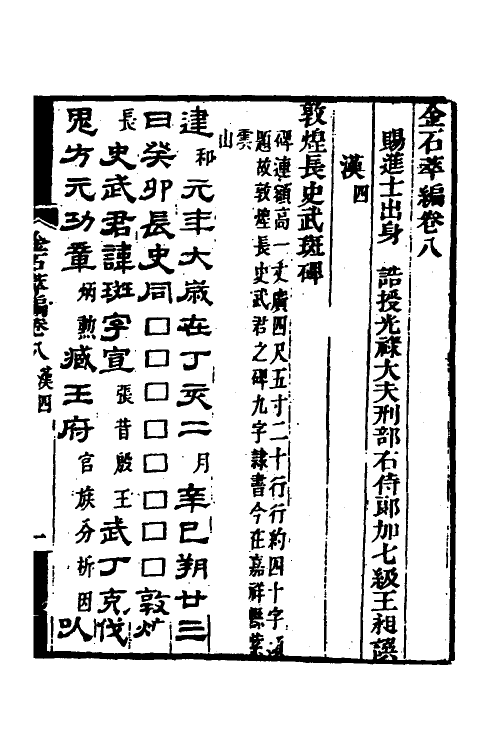 金石萃編卷八
賜進士出身　誥授光祿大夫刑部右侍郎加七級王昶譔
漢四
敦煌長史武斑碑
碑連額高一丈廣四尺五寸二十行行約四十字通
題故敦煌長史武君之碑九字隸書今在嘉祥縣紫
雲
山
建和元年大歲在丁亥二月辛巳朔廿三
日癸卯長史同□□□□□□□□敦煌
長史武君諱斑字宣張昔殷王武丁克伐
鬼方元功章炳勲臧王府官族分析因以
金石萃編卷八　漢四　一